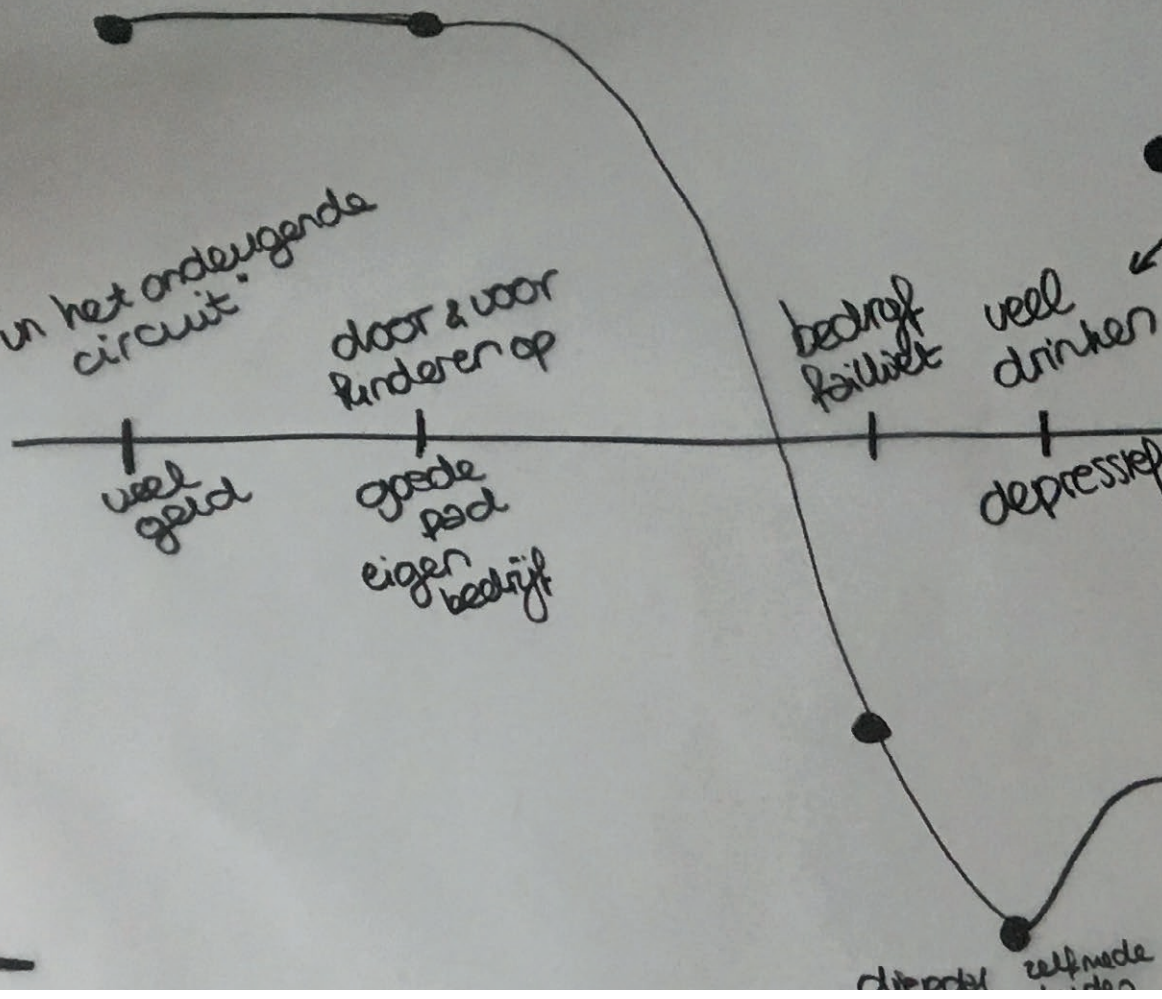 in het ondeugende
circuit"
door & voor
kinderen op
bedrijf
failliet
veel
drinken
veel
geld
goede
pad
eigen
bedrijf
depressief
dieptepunt zelfmede